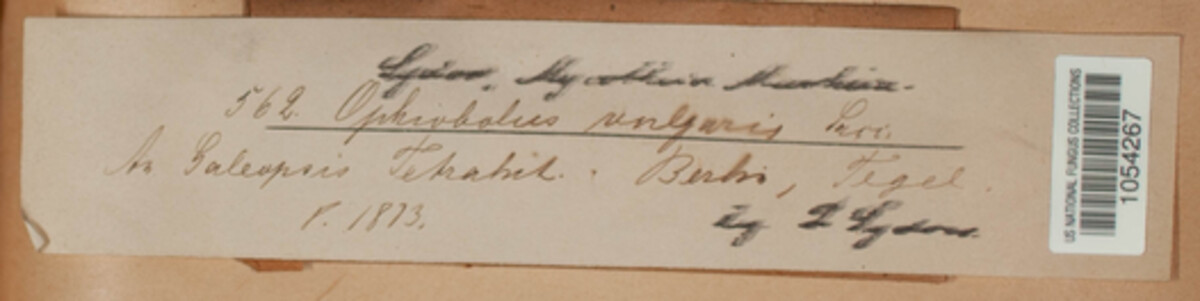 Sydow, Mycotheca Marchica.
562. Ophiobolus vulgaris Sacc.
An Galeopsis Tetrahit. Berlin, Tegel.
1873.
leg. P. Sydow.
US NATIONAL FUNGUS COLLECTIONS
1054267